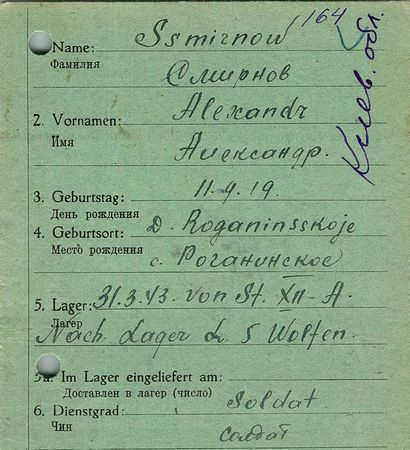 164
Name: Ssmirnow
Фамилия Смирнов
Киев. обл.
2. Vornamen: Alexandr
Имя Александр.
3. Geburtstag: 11.9.19.
День рождения
4. Geburtsort: D. Roganinsskoje
Место рождения с. Роганинское
5. Lager: 31.3.43. von St. XII-A.
Лагер
Nach Lager L. 5 Wolfen.
5a. Im Lager eingeliefert am:
Доставлен в лагер (число)
6. Dienstgrad: Soldat
Чин солдат